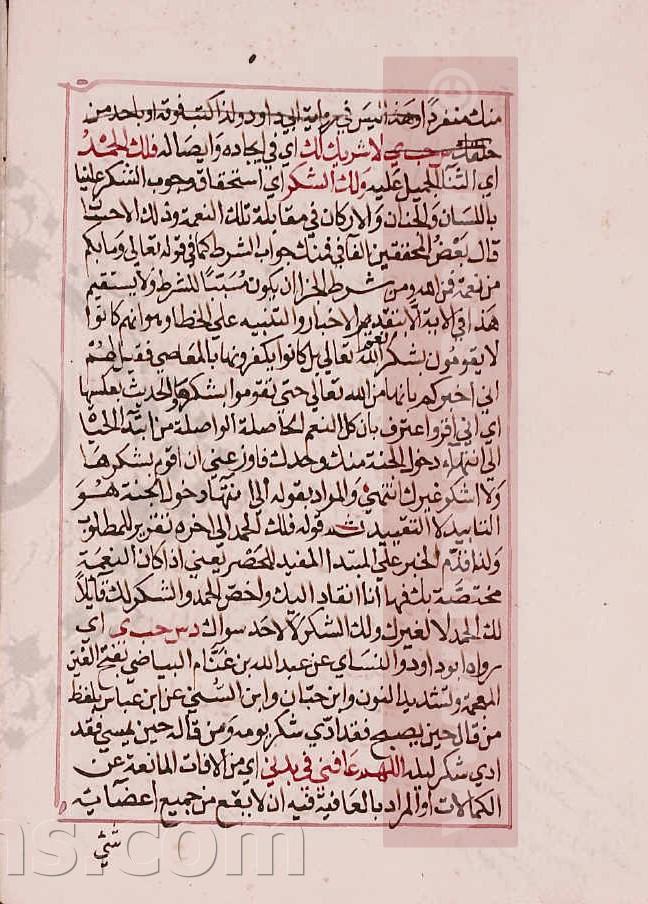 منك منفردا وهذا ليس في رواية ابي داود ولذا اكتب فوقه او باحد من
خلقك س حب ي لا شريك لك اي في ايجاده وايصاله فلك الحمد
اي الثناء الجميل عليه ولك الشكر اي استحقاق وجوب الشكر علينا
باللسان والجنان والاركان في مقابلة تلك النعمة وذلك الاحسان
قال بعض المحققين الفا في فمنك جواب الشرط كما في قوله تعالي وما بكم
من نعمة فمن الله ومن شرط الجزا ان يكون مسببا للشرط ولا يستقيم
هذا في الاية الا بتقدير الاخبار والتنبيه علي الخطا وهو انهم كانوا
لا يقومون بشكر نعم الله تعالي بل كانوا يكفرونها بالمعاصي فقيل لهم
اني اخبركم بانها من الله تعالي حتي تقوموا بشكرها والحديث بعكسها
اي اني اقر واعترف بان كل النعم الحاصلة الواصلة من ابتداء الحياة
الي انتهاء دخول الجنة منك وحدك فاوزعني ان اقوم بشكرها
ولا اشكر غيرك انتهي والمراد بقوله الي انتهاء دخول الجنة هو
التابيد لا التقييد ثم قوله فلك الحمد الي اخره تقرير للمطلوب
ولذا قدم الخبر علي المبتدا المفيد للحصر يعني اذا كان النعمة
مختصة بك فها انا انقاد اليك واخص الحمد والشكر لك قايلا
لك الحمد لا لغيرك ولك الشكر لا لاحد سواك د س حب ي اي
رواه ابو داود والنساي عن عبد الله بن غنام البياضي بفتح الغين
المعجمة وتشديد النون وابن حبان وابن السني عن ابن عباس بلفظ
من قال حين يصبح فقد ادي شكر يومه ومن قاله حين يمسي فقد
ادي شكر ليله اللهم عافني في بدني اي من الافات المانعة عن
الكمالات او المراد بالعافية فيه ان لا يقع من جميع اعضايه
شئ
ns.com